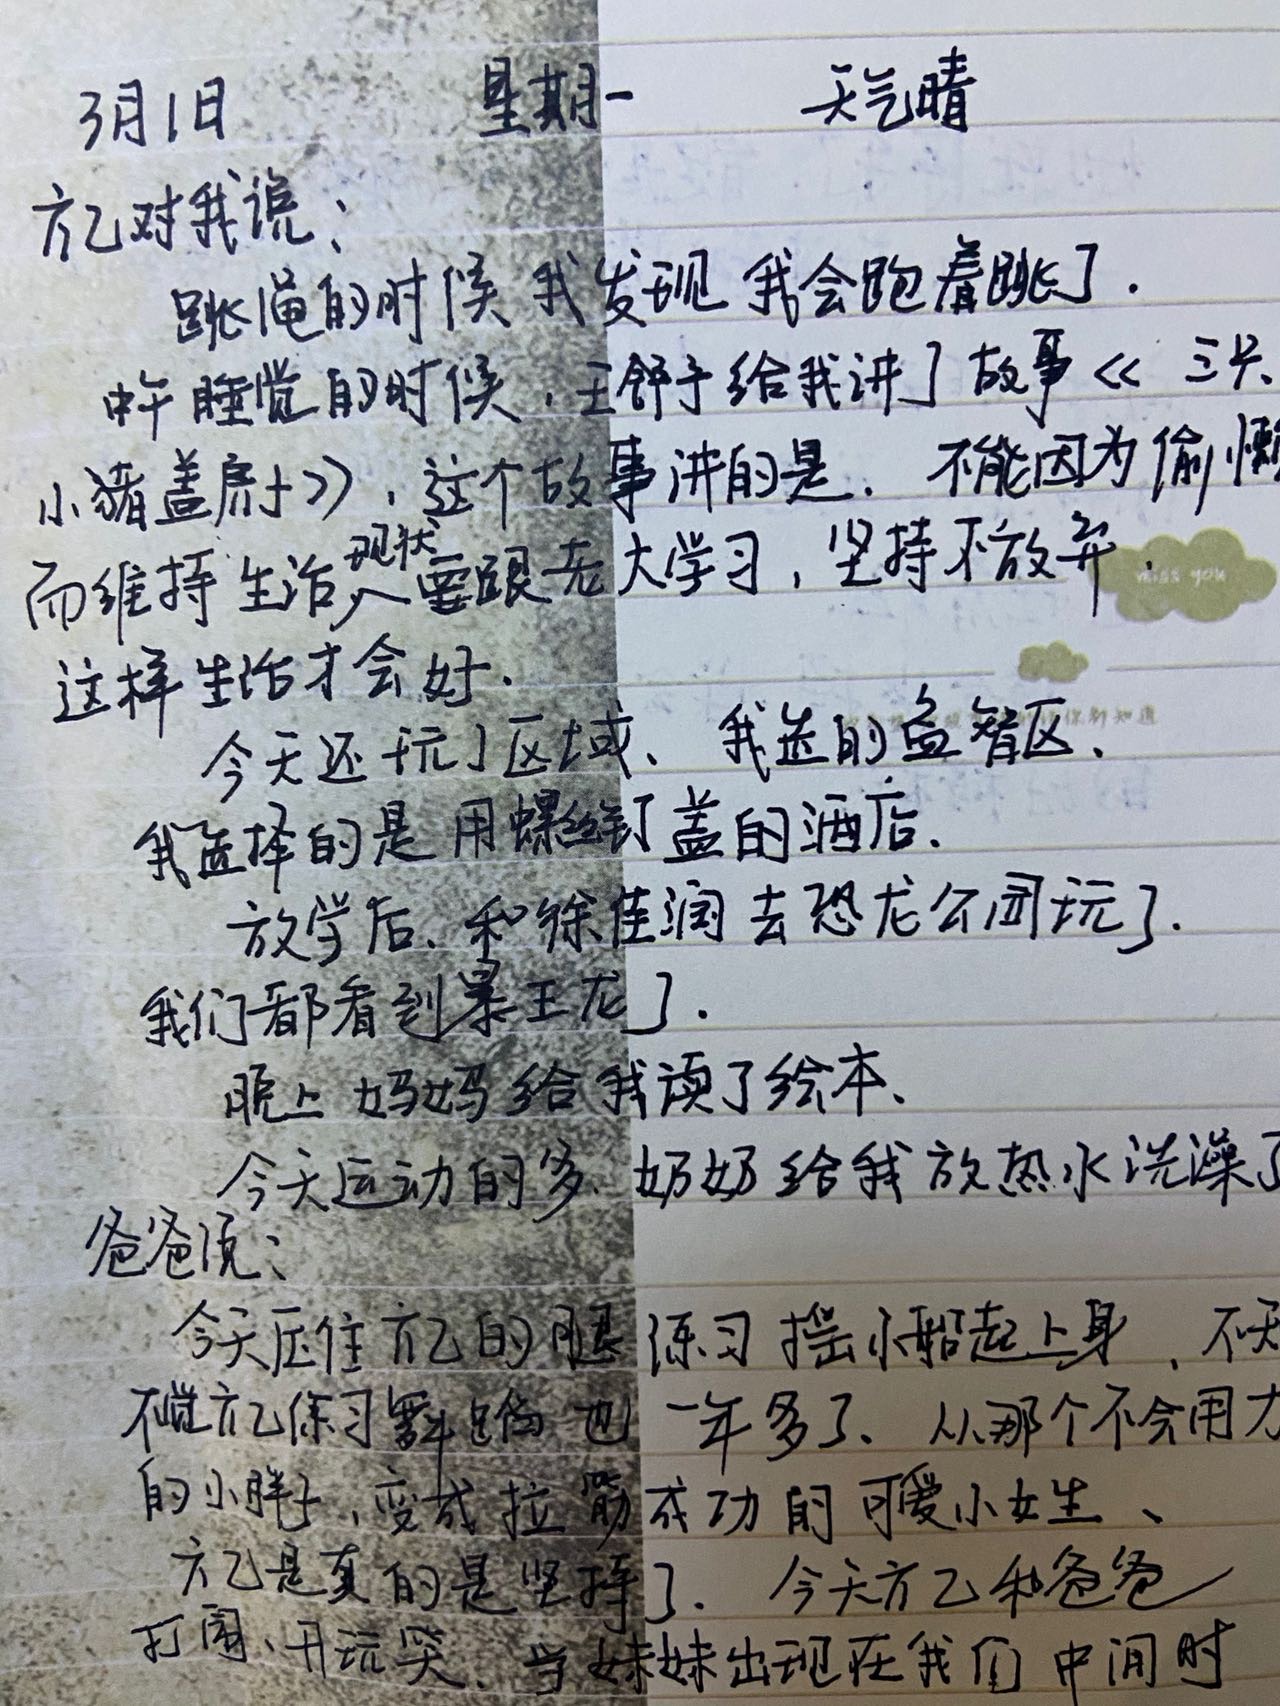 3月1日 星期一 天气晴
方乙对我说：
跳绳的时候我发现我会跑着跳了.
中午睡觉的时候，王舒予给我讲了故事《三只
小猪盖房子》，这个故事讲的是、不能因为偷懒
而维持生活现状要跟老大学习，坚持不放弃，
miss you
这样生活才会好.
今天还玩了区域、我选的益智区、
你都知道
我选择的是用螺丝钉盖的酒店.
放学后、和徐佳润去恐龙公园玩了.
我们都看到暴王龙了.
晚上妈妈给我读了绘本、
今天运动的多、奶奶给我放热水洗澡了
爸爸说：
今天压住方乙的腿练习摇小船起上身、不知
不觉方乙练习舞蹈也一年多了、从那个不会用力
的小胖子，变成拉筋成功的可爱小女生、
方乙是真的是坚持了、今天方乙和爸爸
打闹、开玩笑、当妹妹出现在我们中间时